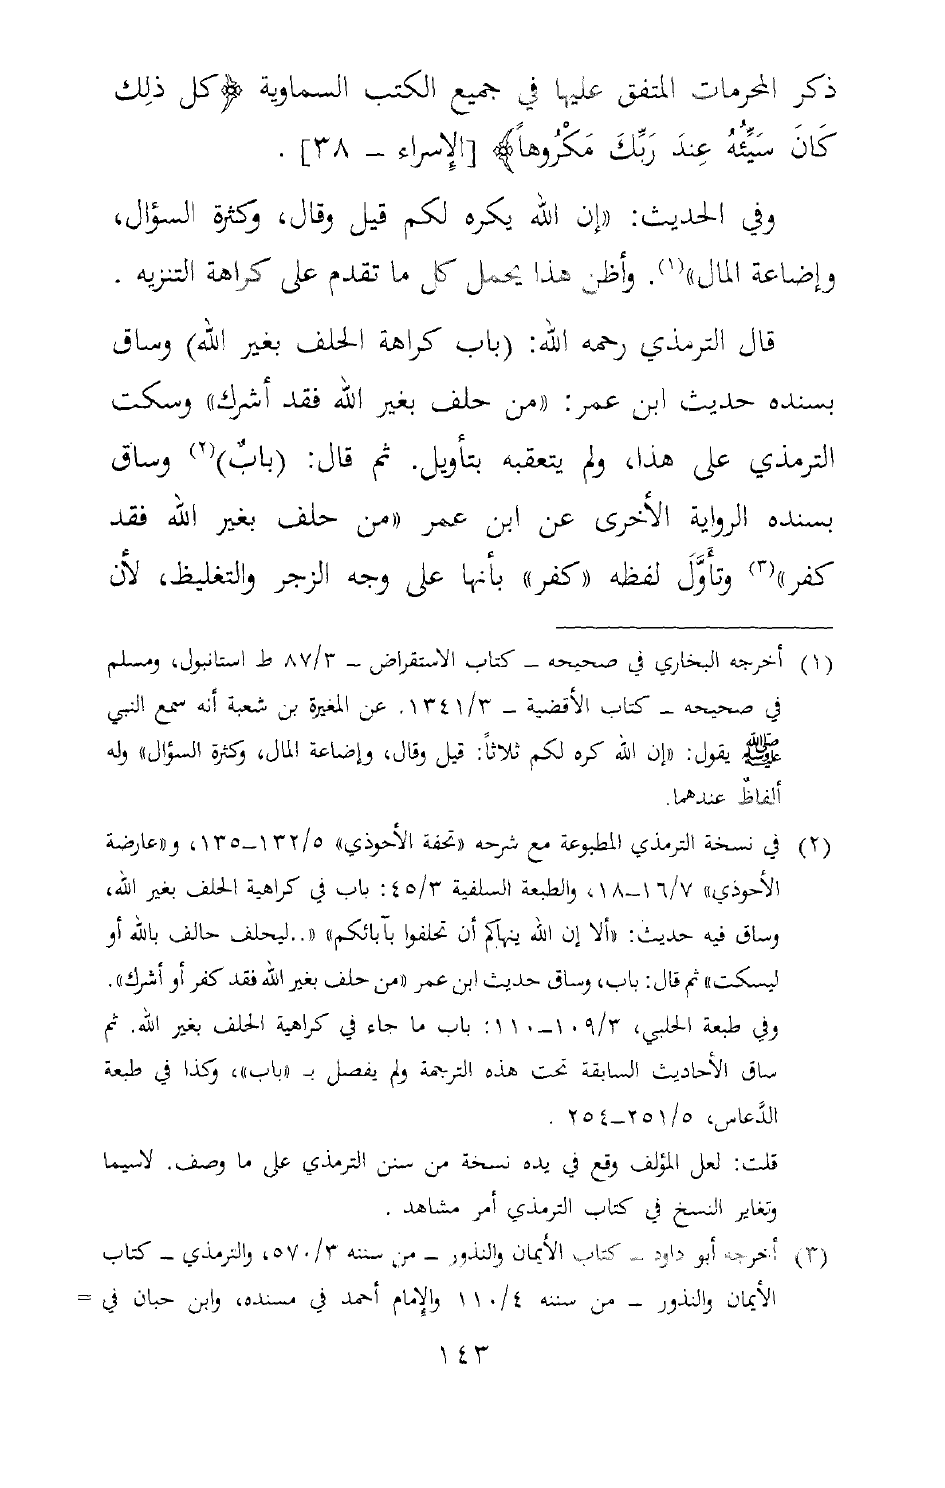 ذكر المحرمات المتفق عليها في جميع الكتب السماوية ﴿كل ذلِك
كَانَ سَيِّئُهُ عِندَ رَبِّكَ مَكْرُوهاً﴾ [الإسراء ـ ٣٨] .
وفي الحديث: «إن الله يكره لكم قيل وقال، وكثرة السؤال،
وإضاعة المال»(١). وأظن هذا يحمل كل ما تقدم على كراهة التنزيه .
قال الترمذي رحمه الله: (باب كراهة الحلف بغير الله) وساق
بسنده حديث ابن عمر: «من حلف بغير الله فقد أشرك» وسكت
الترمذي على هذا، ولم يتعقبه بتأويل. ثم قال: (بابٌ)(٢) وساق
بسنده الرواية الأخرى عن ابن عمر «من حلف بغير الله فقد
كفر»(٣) وتأَوَّلَ لفظه «كفر» بأنها على وجه الزجر والتغليظ، لأن
(١) أخرجه البخاري في صحيحه ـ كتاب الاستقراض ـ ٨٧/٣ ط استانبول، ومسلم
في صحيحه ـ كتاب الأقضية ـ ١٣٤١/٣. عن المغيرة بن شعبة أنه سمع النبي
ﷺ يقول: «إن الله كره لكم ثلاثاً: قيل وقال، وإضاعة المال، وكثرة السؤال» وله
ألفاظٌ عندهما.
(٢) في نسخة الترمذي المطبوعة مع شرحه «تحفة الأحوذي» ١٣٢/٥ـ١٣٥، و«عارضة
الأحوذي» ١٦/٧ـ١٨، والطبعة السلفية ٤٥/٣: باب في كراهية الحلف بغير الله،
وساق فيه حديث: «ألا إن الله ينهاكم أن تحلفوا بآبائكم» «..ليحلف حالف بالله أو
ليسكت» ثم قال: باب، وساق حديث ابن عمر «من حلف بغير الله فقد كفر أو أشرك».
وفي طبعة الحلبي، ١٠٩/٣ـ١١٠: باب ما جاء في كراهية الحلف بغير الله. ثم
ساق الأحاديث السابقة تحت هذه الترجمة ولم يفصل بـ «باب»، وكذا في طبعة
الدَّعاس، ٢٥١/٥ـ٢٥٤ .
قلت: لعل المؤلف وقع في يده نسخة من سنن الترمذي على ما وصف. لاسيما
وتغاير النسخ في كتاب الترمذي أمر مشاهد .
(٣) أخرجه أبو داود ـ كتاب الأيمان والنذور ـ من سننه ٥٧٠/٣، والترمذي ـ كتاب
الأيمان والنذور ـ من سننه ١١٠/٤ والإمام أحمد في مسنده، وابن حبان في =
١٤٣